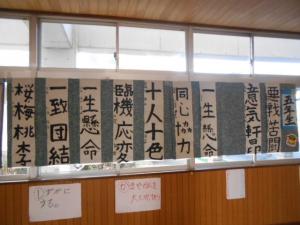 五年生
悪戦苦闘
意気軒昂
一生懸命
同心協力
十人十色
臨機応変
一生懸命
一致団結
桜梅桃李